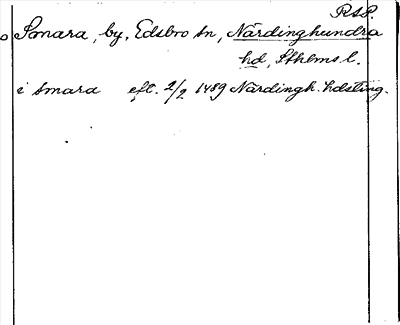 RSP.
Smara, by, Edsbro sn, Närdinghundra
hd, Sthlms l.
i Smara eft. 2/2 1489 Närdingh. hdsting.